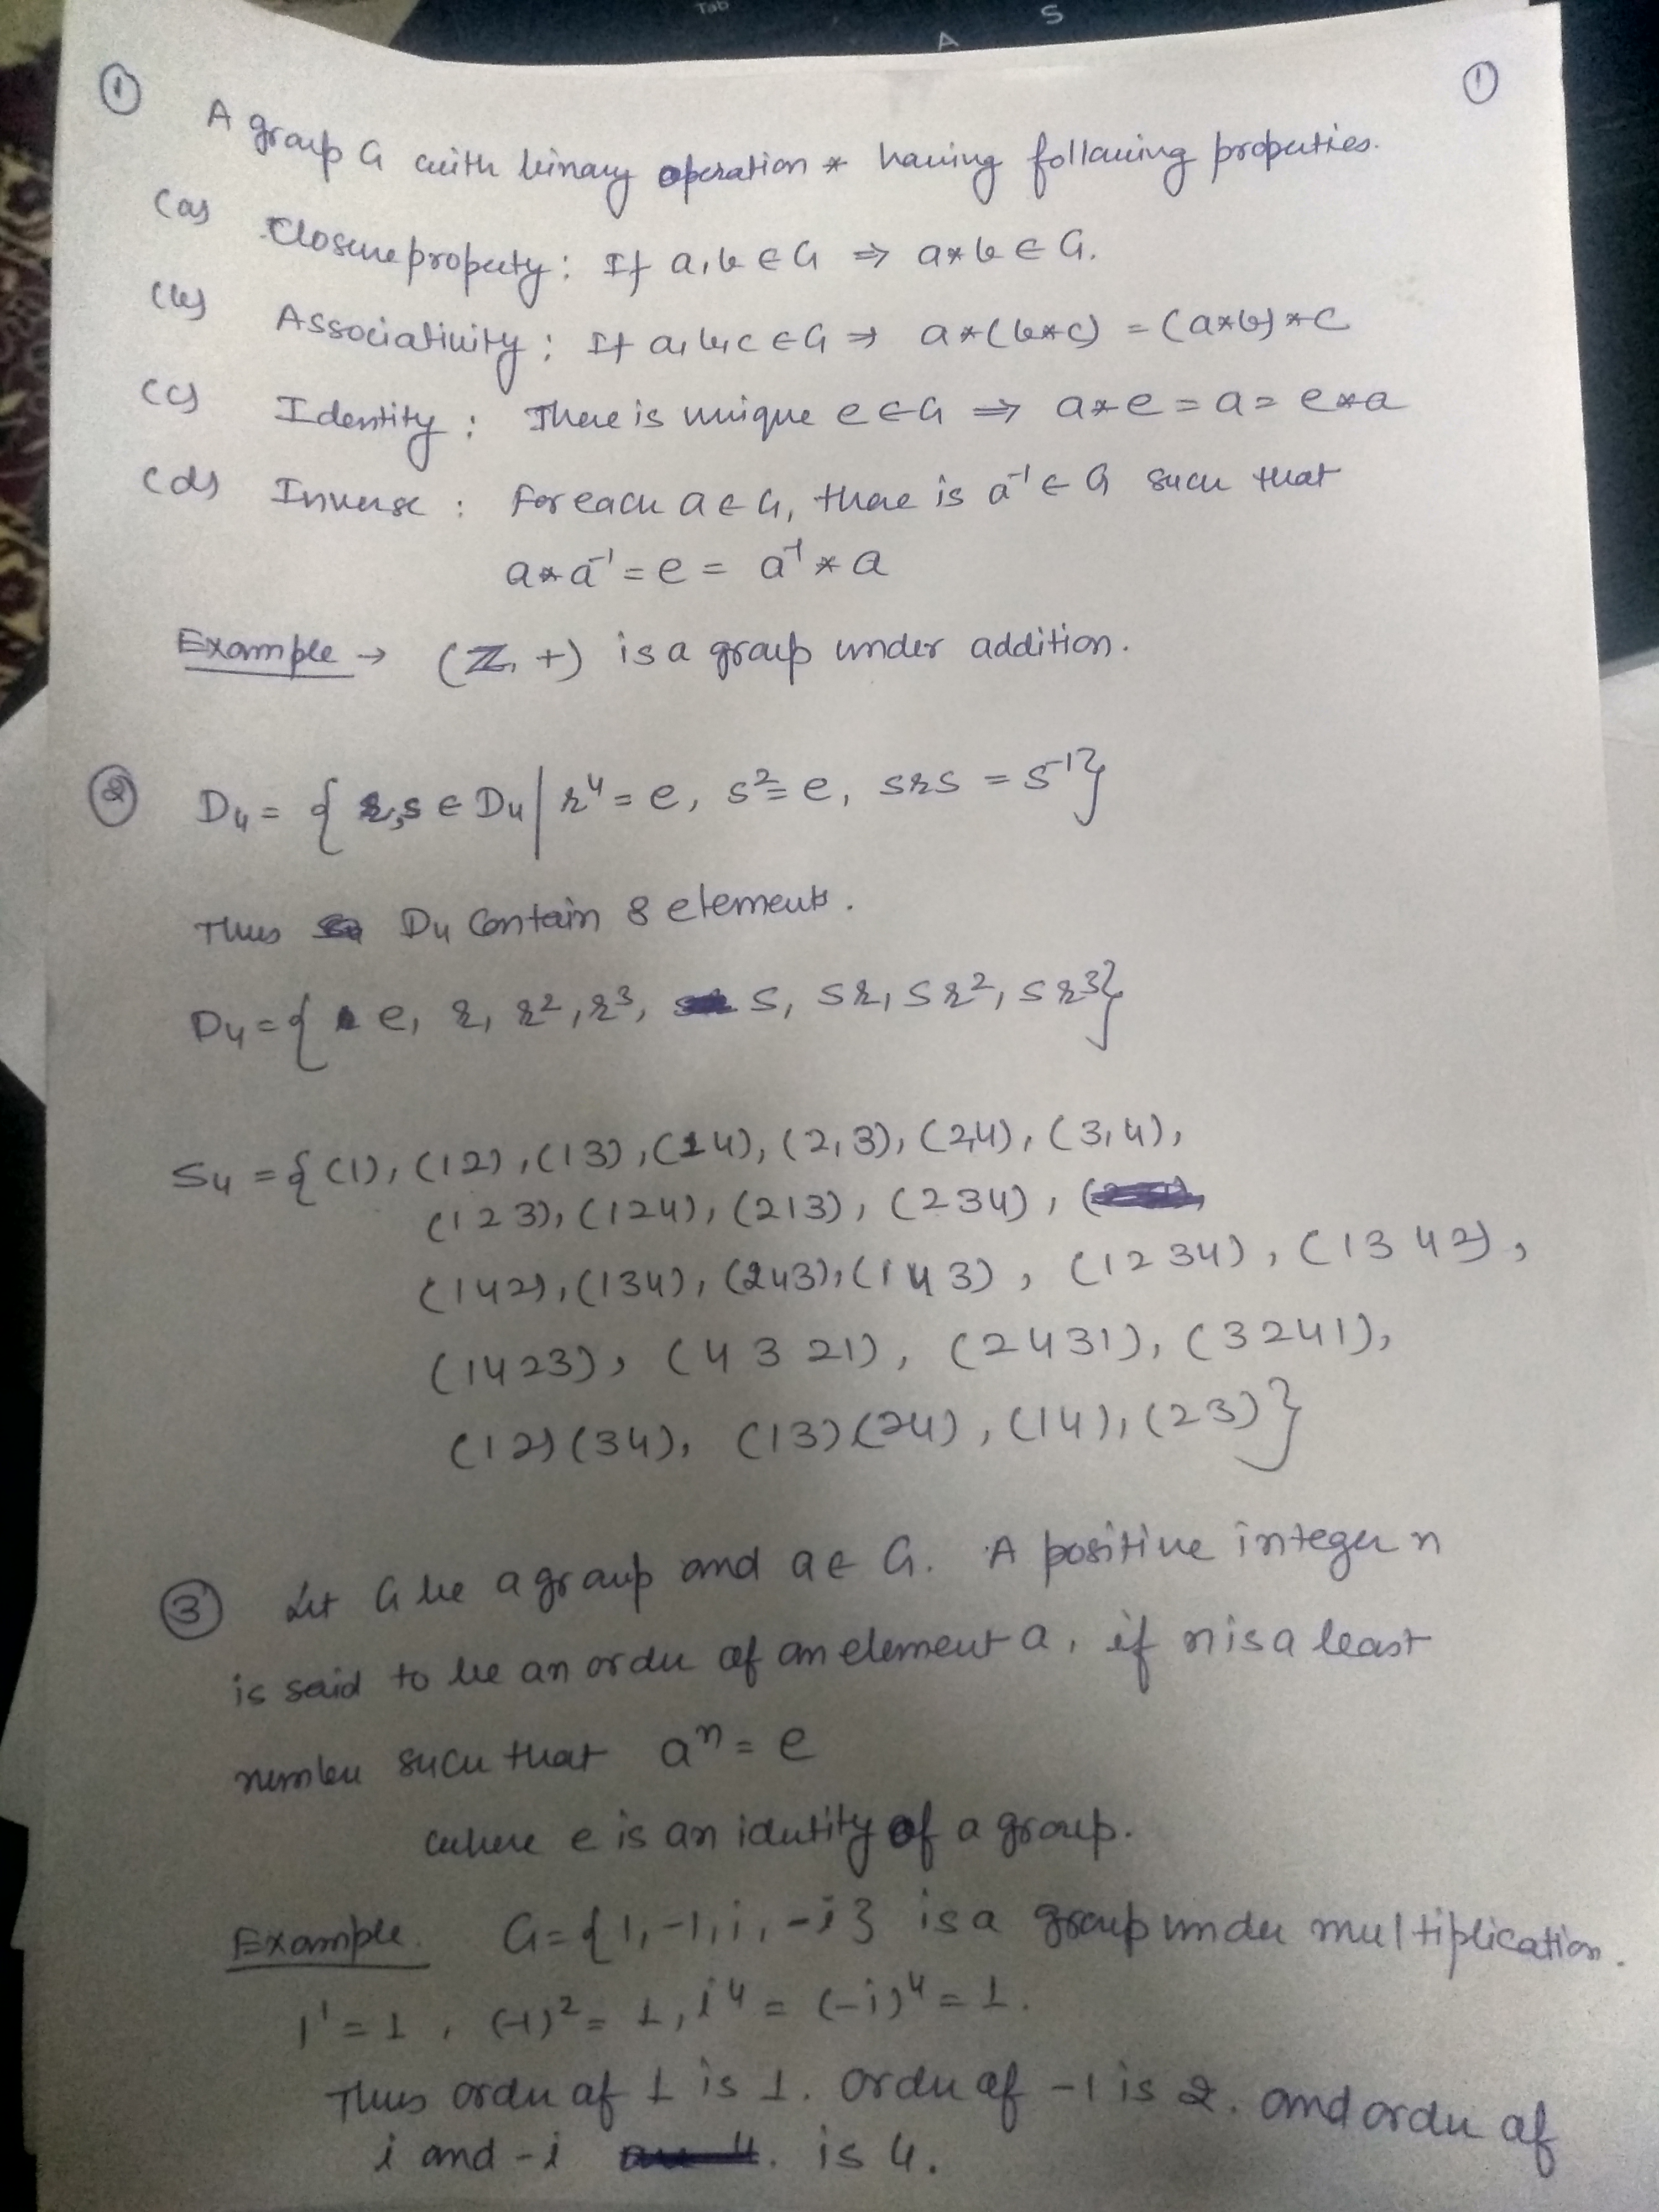 Tab
A S
① ①
A group G with binary operation * having following properties.
(a) Closure property : If a, b ∈ G ⇒ a * b ∈ G.
(b) Associativity : If a, b, c ∈ G ⇒ a * (b * c) = (a * b) * c
(c) Identity : There is unique e ∈ G ⇒ a * e = a = e * a
(d) Inverse : For each a ∈ G, there is a⁻¹ ∈ G such that
a * a⁻¹ = e = a⁻¹ * a
Example → (ℤ, +) is a group under addition.
② D₄ = { r, s ∈ D₄ | r⁴ = e, s² = e, srs = s⁻¹}
Thus D₄ contain 8 elements.
D₄ = { e, r, r², r³, s, sr, sr², sr³}
S₄ = { (1), (12), (13), (14), (2,3), (24), (3,4),
(123), (124), (213), (234),
(142), (134), (243), (143), (1234), (1342),
(1423), (4321), (2431), (3241),
(12)(34), (13)(24), (14), (23)}
③ Let G be a group and a ∈ G. A positive integer n
is said to be an order of an element a, if n is a least
number such that aⁿ = e
where e is an idutity of a group.
Example. G = {1, -1, i, -i} is a group under multiplication.
1¹ = 1, (-1)² = 1, i⁴ = (-i)⁴ = 1.
Thus order of 1 is 1. order of -1 is 2. and order of
i and -i is 4.